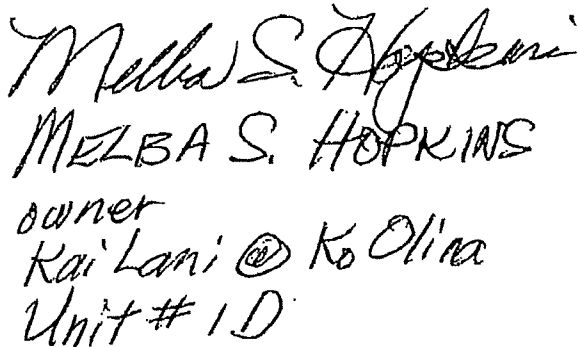 Melba S. Hopkins
MELBA S. HOPKINS
owner
Kai Lani @ Ko Olina
Unit # 1D